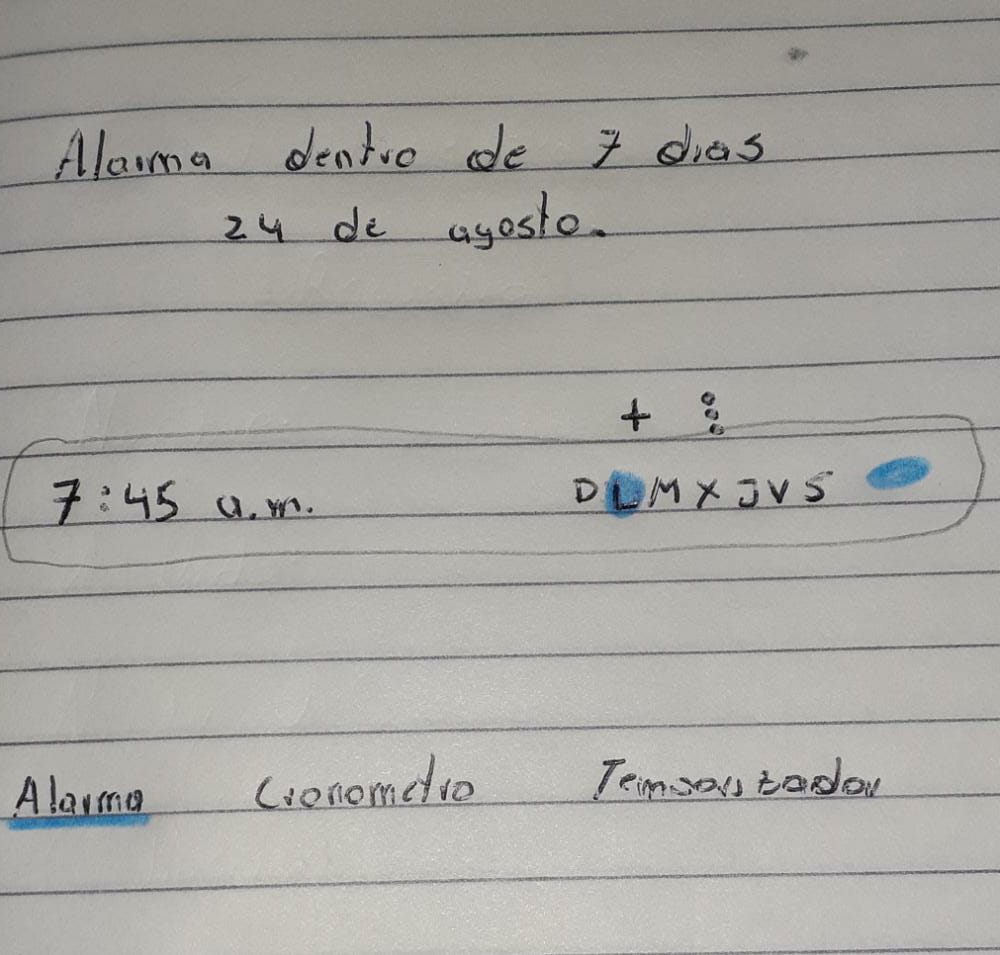 Alarma dentro de 7 dias
24 de agosto.
+ ⋮
7:45 a.m. D L M X J V S
Alarma Cronometro